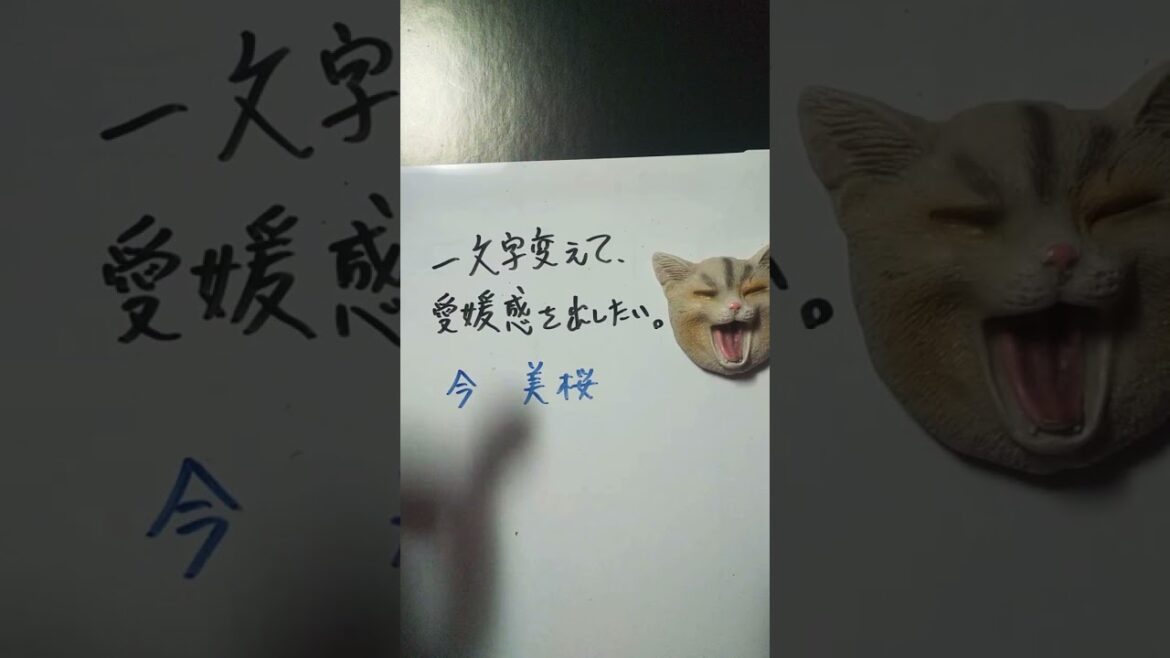 一文字変えて、
愛媛感を出したい。
今 美桜